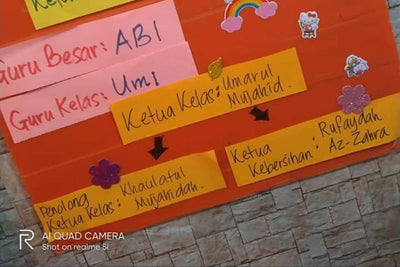 Guru Besar: ABI
Guru Kelas: Umi
Ketua Kelas: Umarul
Mujahid.
Ketua
Kebersihan: Rufaydah
Az-Zahra
Penolong
Ketua Kelas: Khaulatul
Mujahidah.
R
AI QUAD CAMERA
Shot on realme 5i